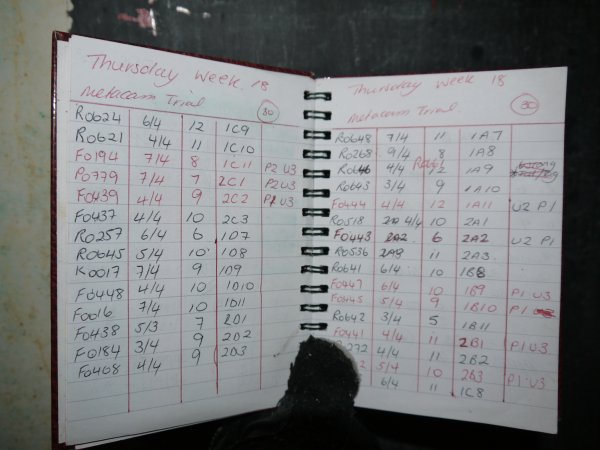 Thursday Week 18
Metacam Trial 30
R0624 6/4 12 1C9
R0621 4/4 11 1C10
F0194 7/4 8 1C11 P2 U3
P0779 7/4 7 2C1 P2U3
F0439 4/4 9 2C2 P1 U3
F0437 4/4 10 2C3
R0257 6/4 6 1D7
R0645 5/4 10 1D8
K0017 7/4 9 1D9
F0448 4/4 10 1D10
F0016 7/4 10 1D11
F0438 5/3 7 2D1
F0184 3/4 9 2D2
F0468 4/4 9 2D3
Thursday Week 18
Metacam Trial 30
R0648 7/4 11 1A7
R0268 9/4 8 1A8
4/4 12 1A9
R0643 3/4 9 1A10
F0444 4/4 12 1A11 U2 P1
R0518 4/4 10 2A1
F0443 2A2 6 2A2 U2 P1
R0536 2A9 11 2A3
R0641 6/4 10 1B8
F0447 6/4 10 1B9 P1 U3
F0445 5/4 9 1B10 P1
R0642 3/4 5 1B11
F0441 4/4 11 2B1 P1 U3
272 4/4 11 2B2
5/4 10 2B3 P1 U3
6/4 11 1C8